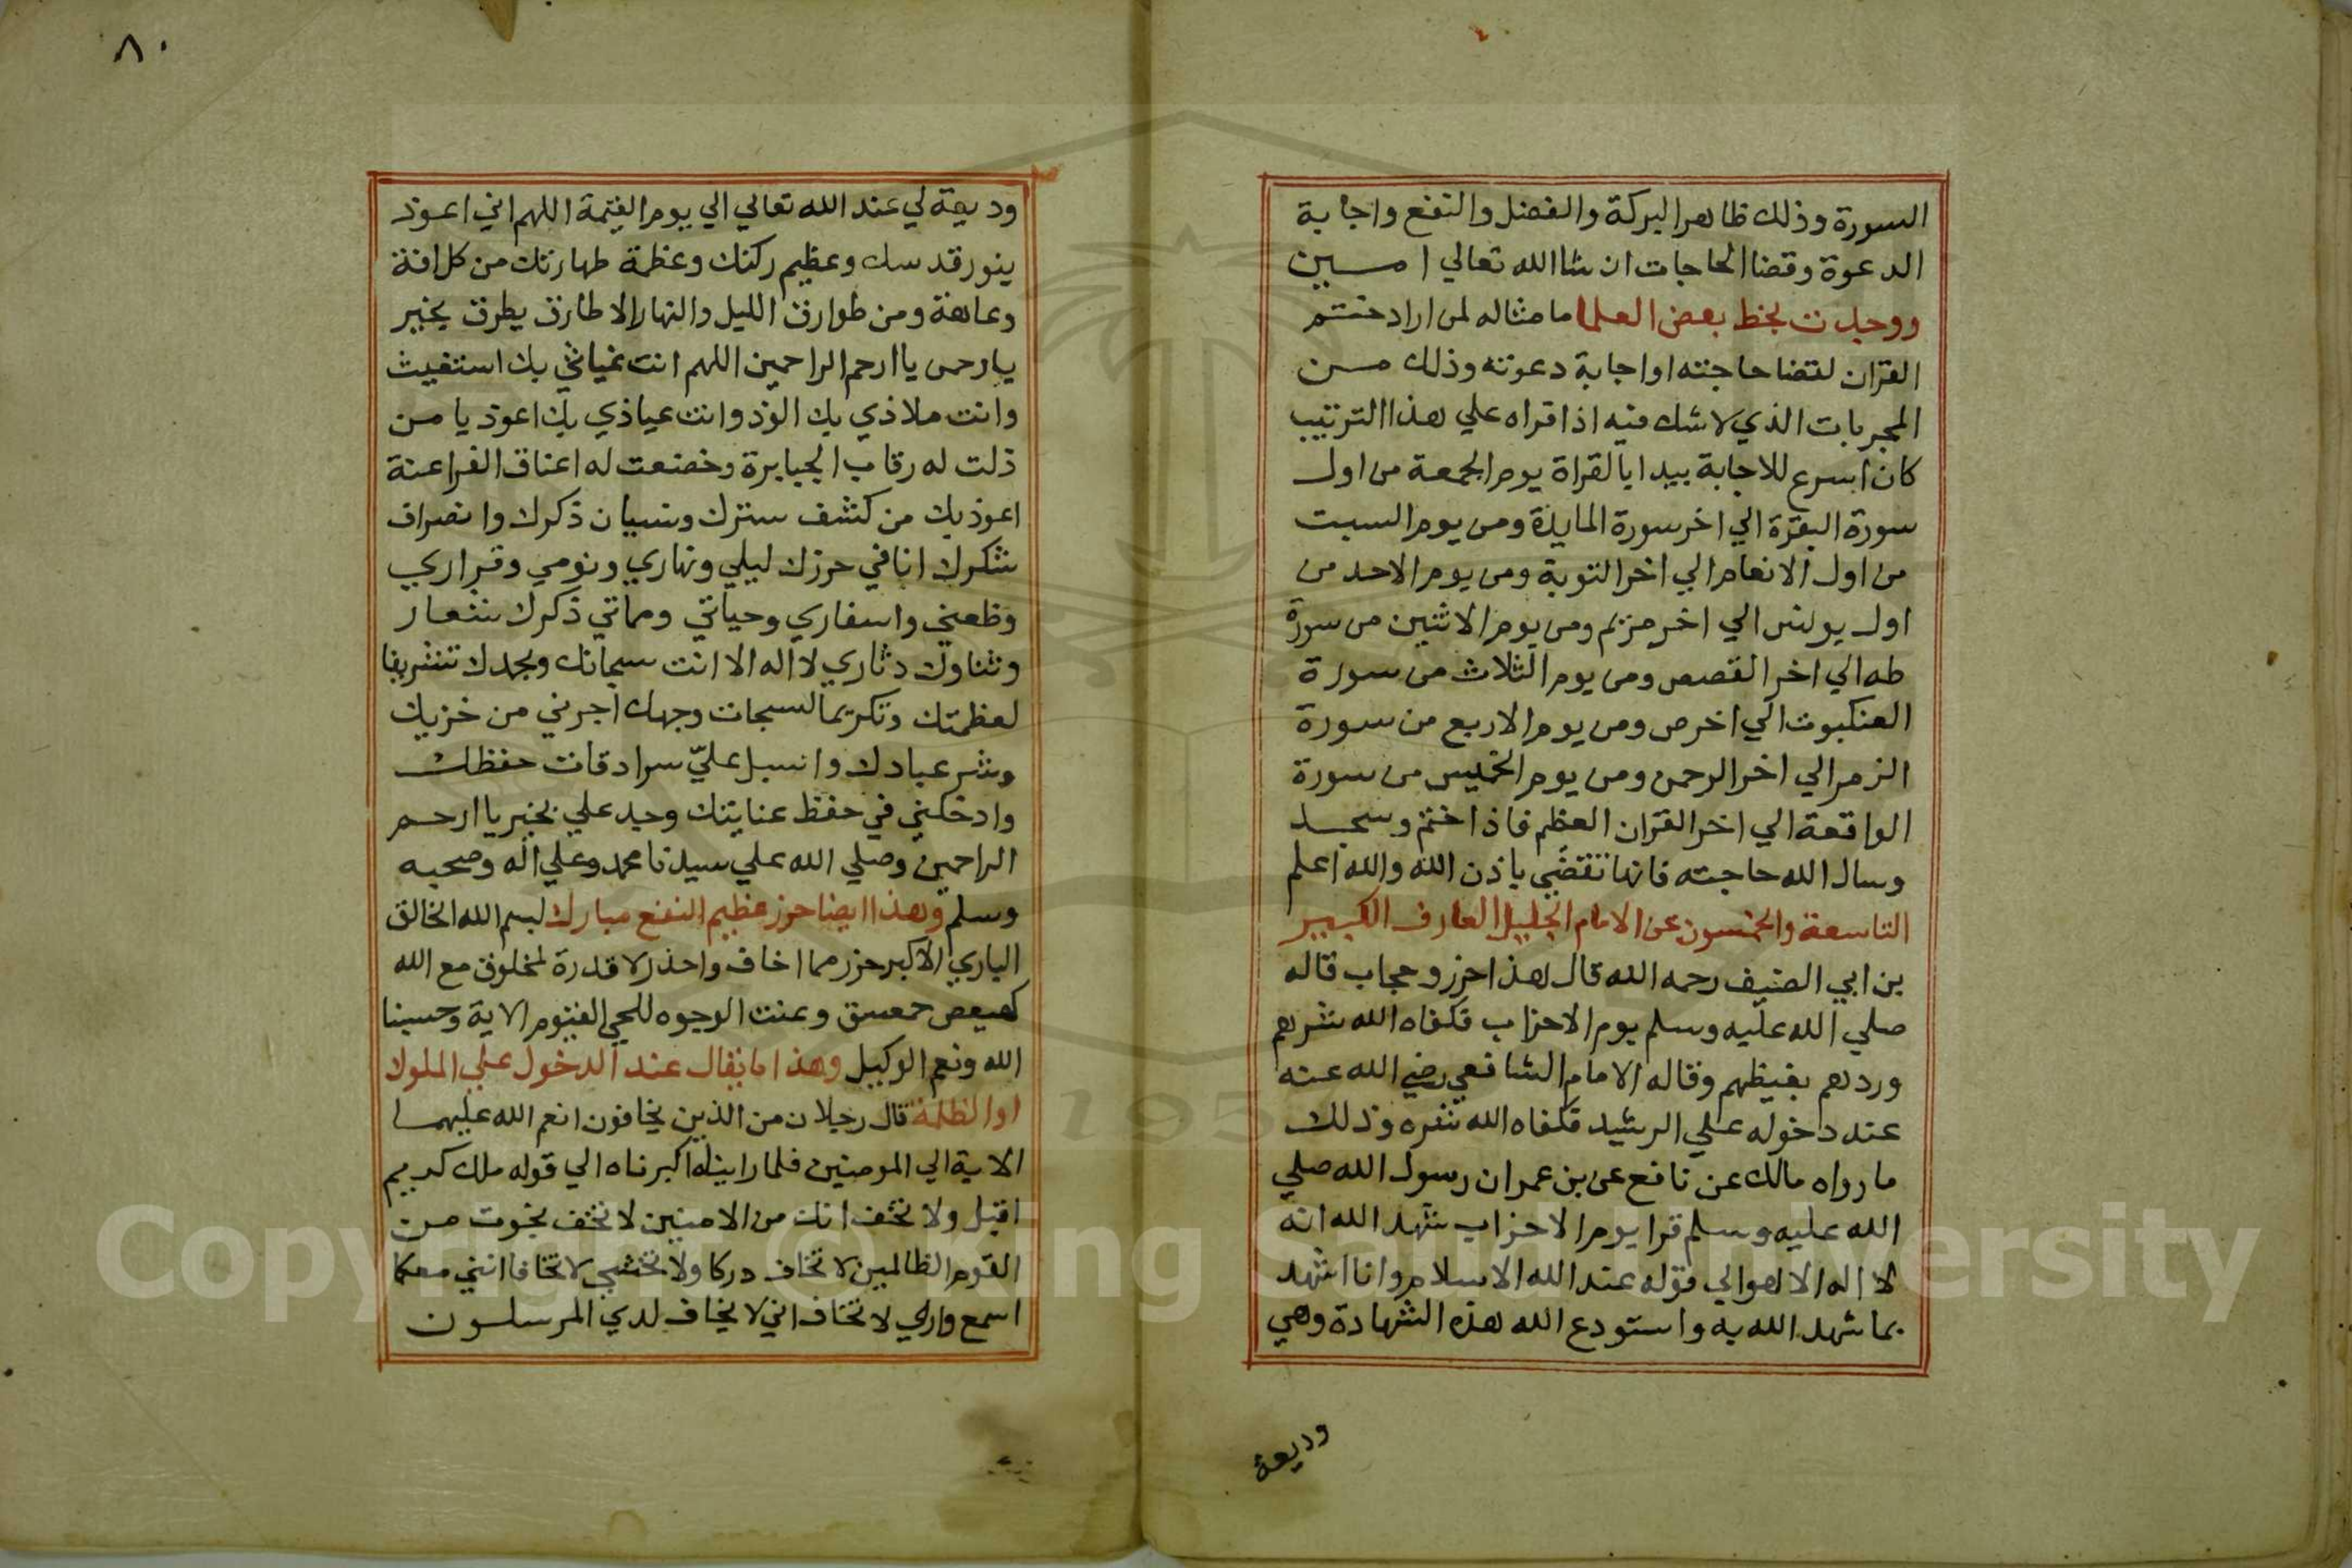 السورة وذلك ظاهر البركة والفضل والنفع واجابة
الدعوة وقضا الحاجات ان شا الله تعالي امين
ووجدت بخط بعض العلما ما مثاله لمن اراد ختم
القران لقضا حاجته او اجابة دعوته وذلك من
المجربات الذي لا شك فيه اذا قراه علي هذا الترتيب
كان اسرع للاجابة يبدا بالقراة يوم الجمعة من اول
سورة البقرة الي اخر سورة المايدة ومن يوم السبت
من اول الانعام الي اخر التوبة ومن يوم الاحد من
اول يونس الي اخر مريم ومن يوم الاثنين من سورة
طه الي اخر القصص ومن يوم الثلاث من سورة
العنكبوت الي اخر ص ومن يوم الاربع من سورة
الزمر الي اخر الرحمن ومن يوم الخميس من سورة
الواقعة الي اخر القران العظيم فاذا ختم وسجد
وسال الله حاجته فانها تقضي باذن الله والله اعلم
التاسعة والخمسون عن الامام الجليل العارف الكبير
بن ابي الضيف رحمه الله قال هذا حرز وحجاب قاله
صلي الله عليه وسلم يوم الاحزاب فكفاه الله شرهم
وردهم بغيظهم وقاله الامام الشافعي رضي الله عنه
عند دخوله علي الرشيد فكفاه الله شره وذلك
ما رواه مالك عن نافع عن بن عمر ان رسول الله صلي
الله عليه وسلم قرا يوم الاحزاب شهد الله انه
لا اله الا هو الي قوله عند الله الاسلام وانا اشهد
بما شهد الله به واستودع الله هذه الشهادة وهي
وديعة
٨٠
وديعة لي عند الله تعالي الي يوم القيمة اللهم اني اعوذ
بنور قدسك وعظيم ركنك وعظمة طهارتك من كل افة
وعاهة ومن طوارق الليل والنهار الا طارق يطرق بخير
يا رحمن يا ارحم الراحمين اللهم انت غياثي بك استغيث
وانت ملاذي بك الوذ وانت عياذي بك اعوذ يا من
ذلت له رقاب الجبابرة وخضعت له اعناق الفراعنة
اعوذ بك من كشف سترك ونسيان ذكرك وانصراف
شكرك انا في حرزك ليلي ونهاري ونومي وقراري
وظعني واسفاري وحياتي ومماتي ذكرك شعار
وثناوك دثاري لا اله الا انت سبحانك وبحمدك تشريفا
لعظمتك وتكريما لسبحات وجهك اجرني من خزيك
وشر عبادك واسبل عليّ سرادقات حفظك
وادخلني في حفظ عنايتك وجد علي بخير يا ارحم
الراحمين وصلي الله علي سيدنا محمد وعلي اله وصحبه
وسلم وهذا ايضا حرز عظيم النفع مبارك بسم الله الخالق
الباري الاكبر حرز مما اخاف واحذر لا قدرة لمخلوق مع الله
كهيعص حمعسق وعنت الوجوه للحي القيوم الاية وحسبنا
الله ونعم الوكيل وهذا ما يقال عند الدخول علي الملوك
او الظلمة قال رجلان من الذين يخافون انعم الله عليهما
الاية الي المومنين فلما راينه اكبرناه الي قوله ملك كريم
اقبل ولا تخف انك من الامنين لا تخف نجوت من
القوم الظالمين لا تخاف دركا ولا تخشي لا تخافا انني معكما
اسمع واري لا تخاف اني لا يخاف لدي المرسلون
Copyright © King Saud University
195